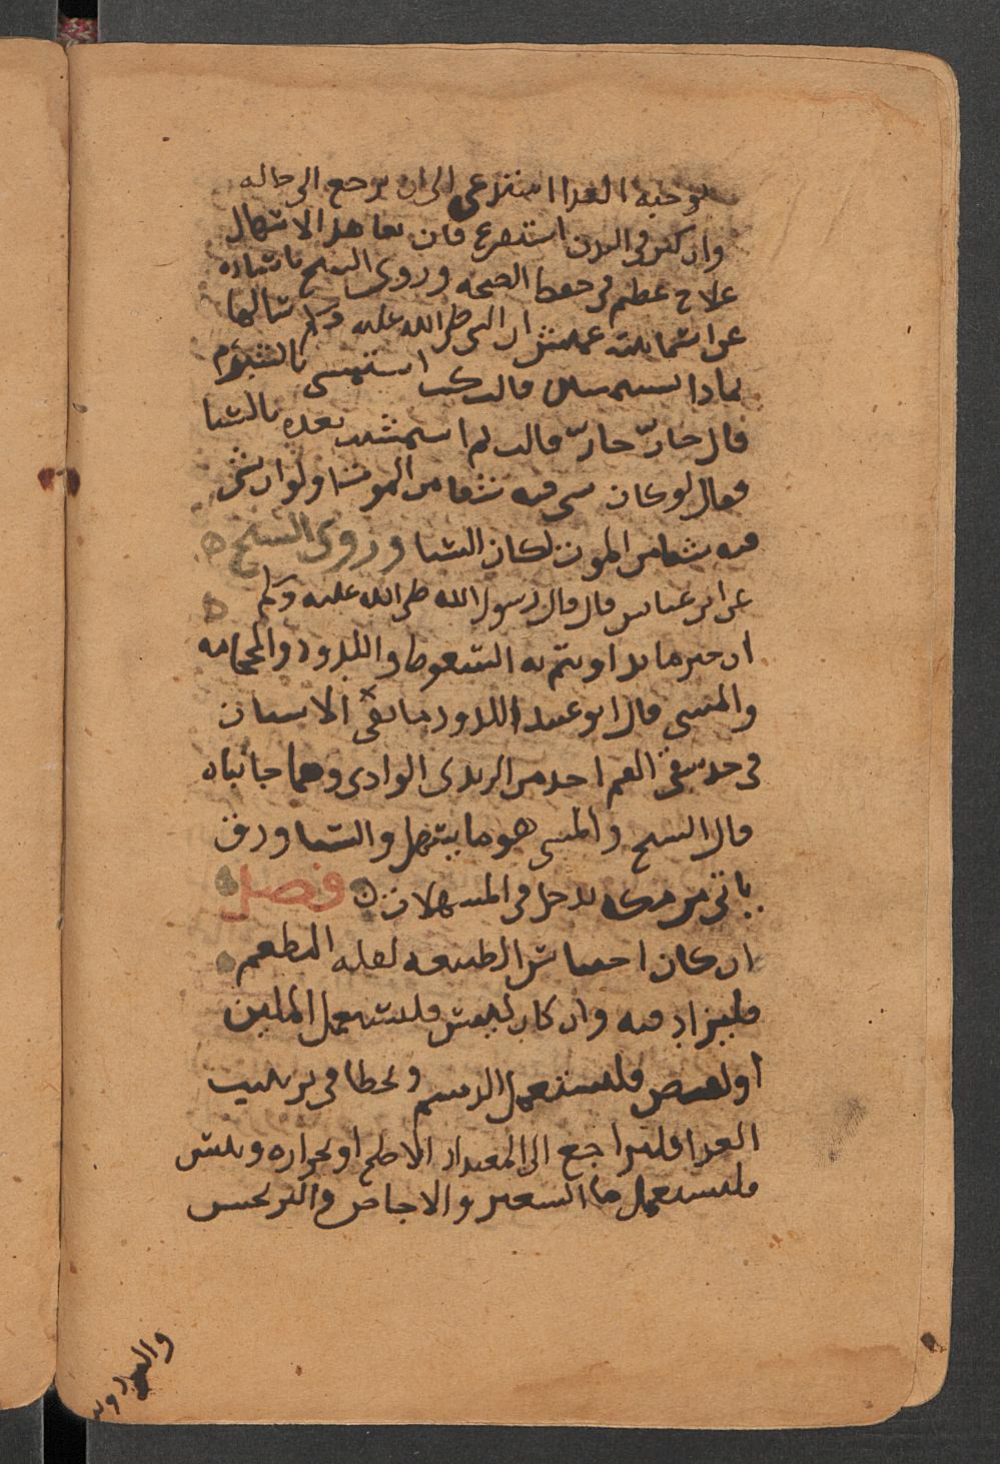 يوجبه الغذا استدعى الى ان يرجع الى حاله
وان كثر في البدن استفرغ فان تعاهد الاسهال
علاج عظيم في حفظ الصحه وروى الشيخ باسناده
عن اسما بنت عميس ان النبي صلى الله عليه وسلم سالها
بماذا تستمشين قالت كنت استمشى بالشبرم
قال حارّ حارّ قالت ثم استمشيت بعده بالسنا
فقال لو كان شى فيه شفا من الموت او لو ان شى
فيه شفا من الموت لكان السنا وروى الشيخ
عن ابن عباس قال قال رسول الله صلى الله عليه وسلم
ان خير ما تداويتم به السعوط واللدود والحجامه
والمشى قال ابو عبيد اللدود ما سقى الانسان
في احد شقى الفم اخد من لديدى الوادى وهما جانباه
قال الشيخ والمشى هو ما يسهل والسنا ورق
ياتى من مكه يدخل في المسهلات فصل
ان كان احتباس الطبيعه لقله المطعم
فليزاد فيه وان كان ليبس فليستعمل الملين
او لعفص فليستعمل الدسم ولخطا في ترتيب
الغذا فليراجع الى المقدار الاصلح او لحراره ويبس
فليستعمل ما الشعير والاجاص والترنجبين